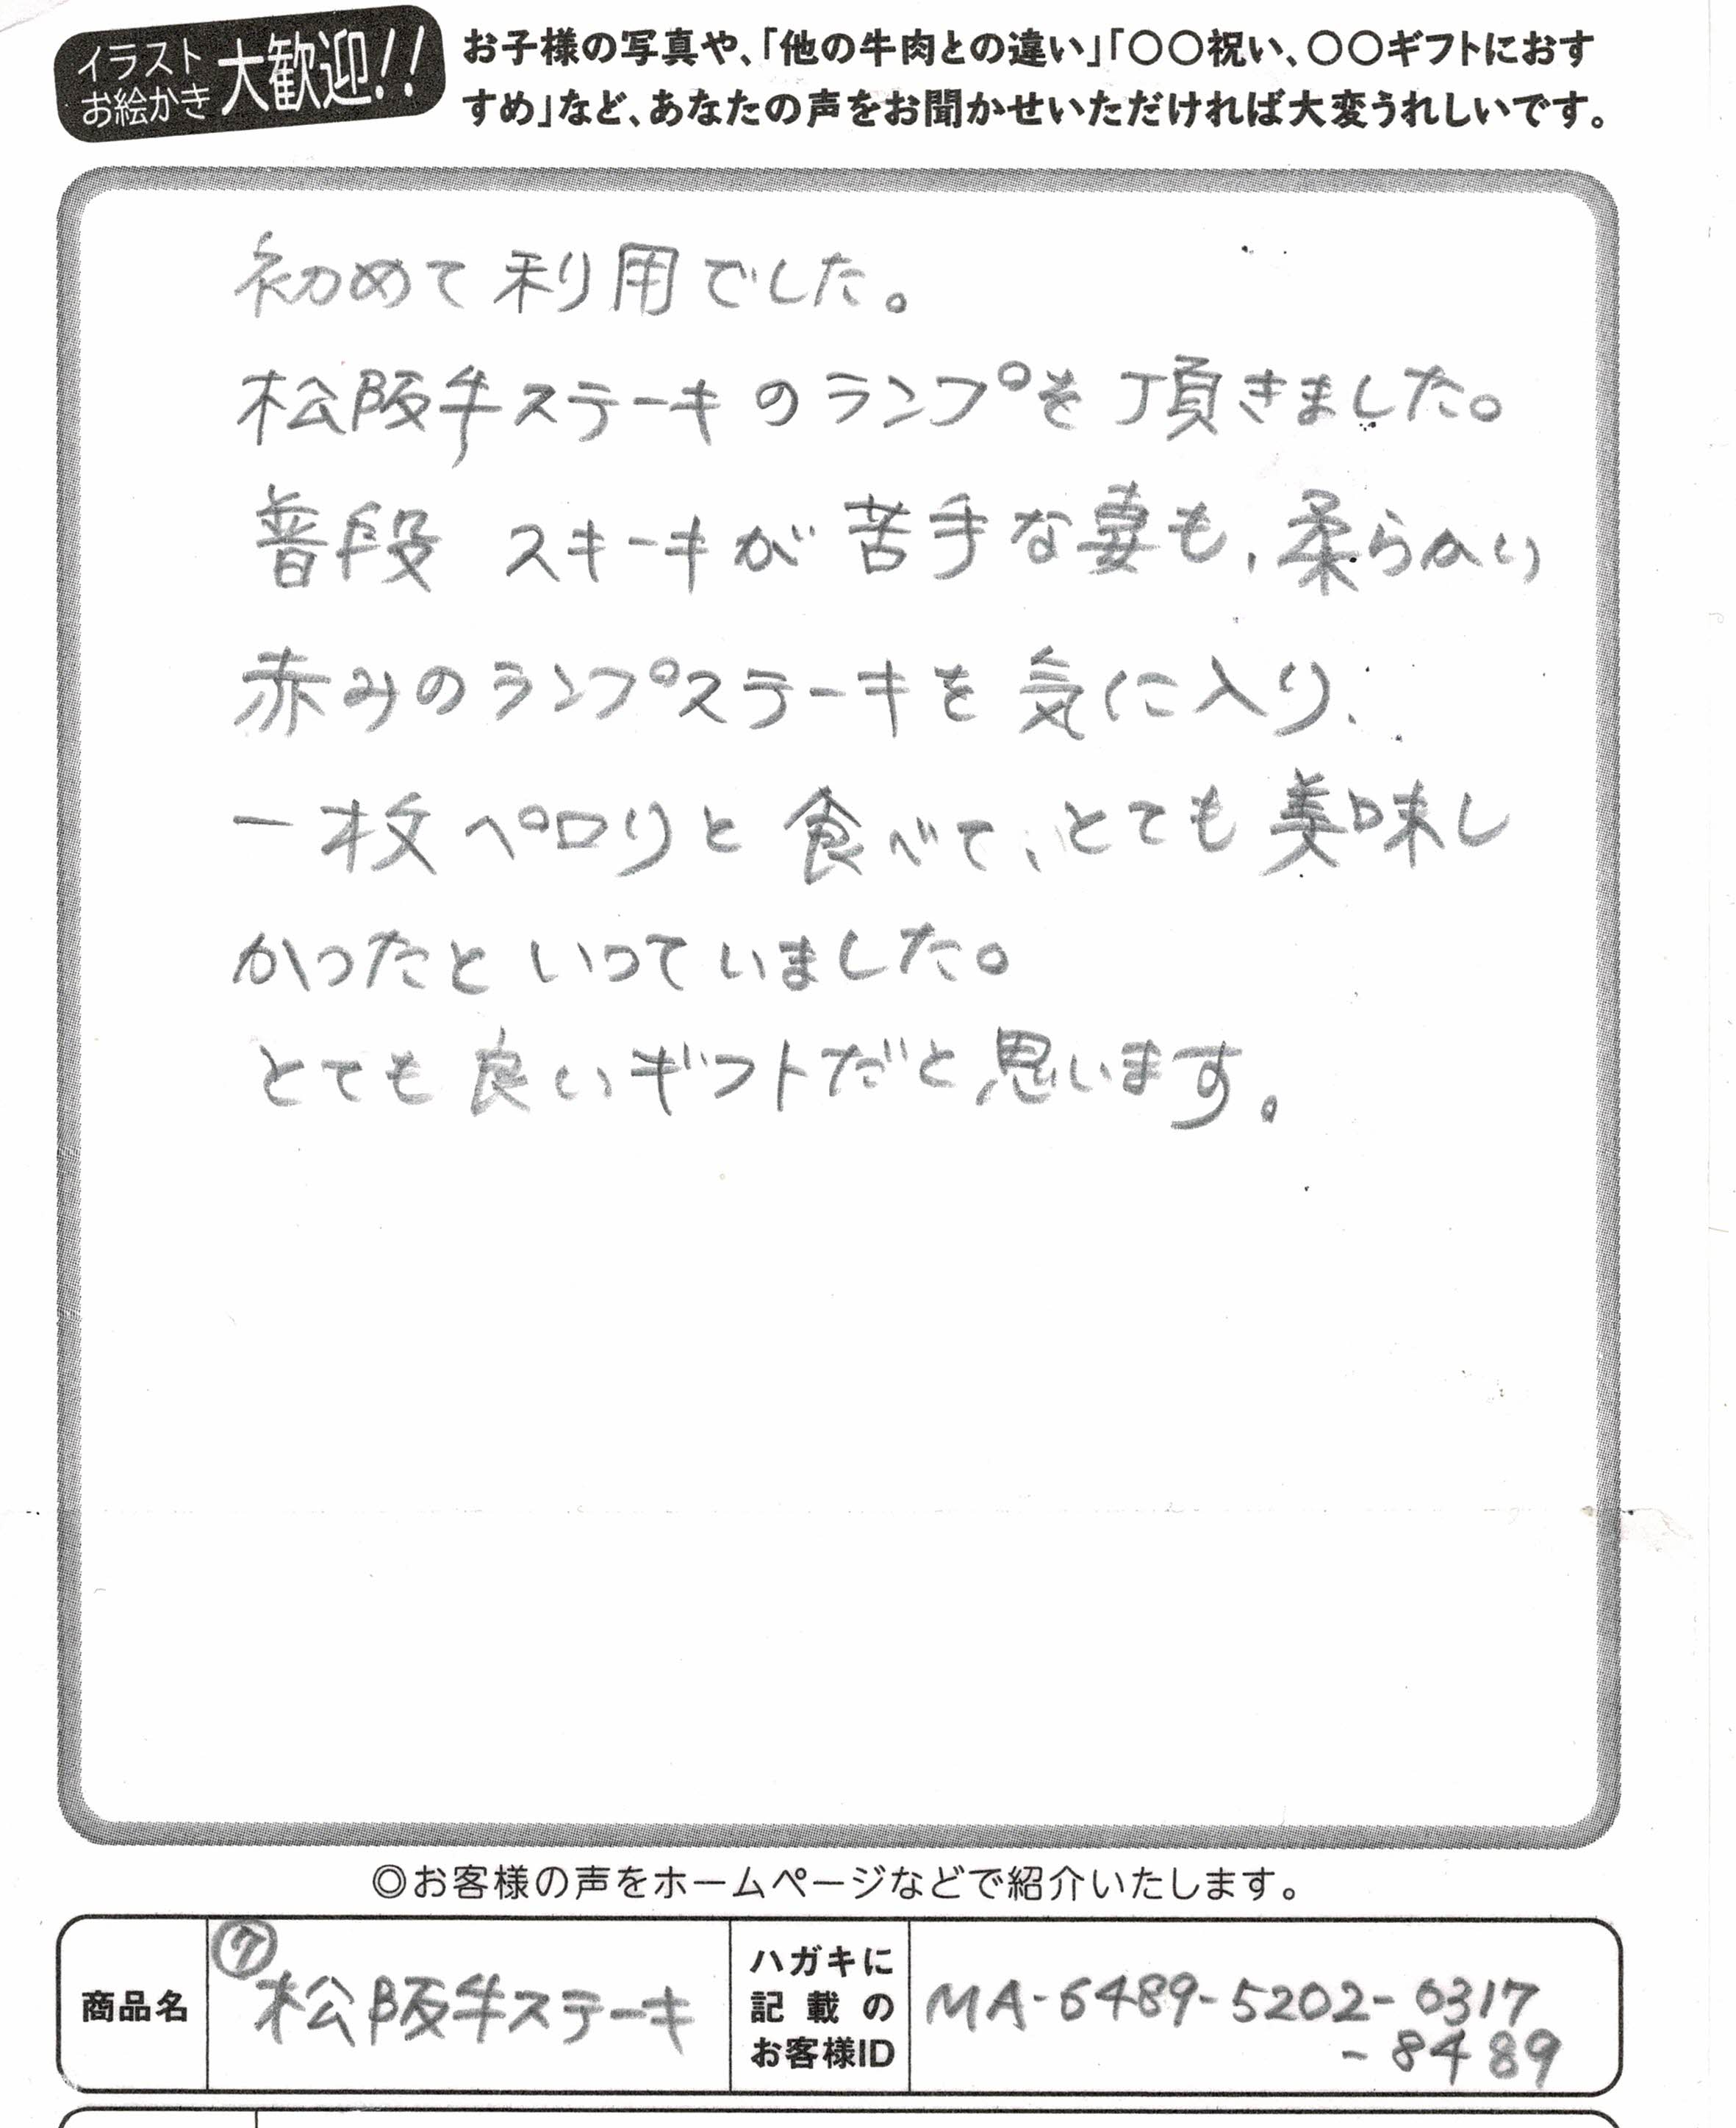 イラスト
お絵かき
大歓迎!!
お子様の写真や、「他の牛肉との違い」「○○祝い、○○ギフトにおす
すめ」など、あなたの声をお聞かせいただければ大変うれしいです。
初めて利用でした。
松阪牛ステーキのランプを頂きました。
普段 スキーキが苦手な妻も、柔らかい
赤みのランプステーキを気に入り、
一枚ペロリと食べて、とても美味し
かったといっていました。
とても良いギフトだと思います。
◎お客様の声をホームページなどで紹介いたします。
商品名
⑦
松阪牛ステーキ
ハガキに
記載の
お客様ID
MA-6489-5202-0317
-8489